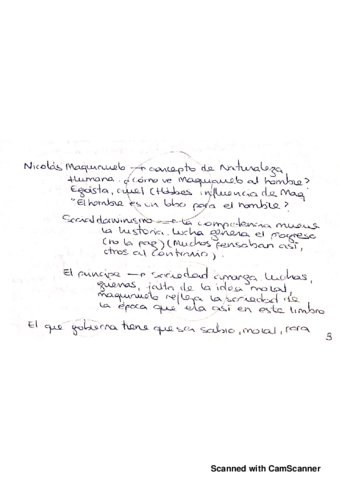 Nicolás Maquiavelo → concepto de Naturaleza
Humana. ¿cómo ve Maquiavelo al hombre?
Egoista, cruel (Hobbes influencia de Maq
"El hombre es un lobo para el hombre?
Socialdarwinismo → la competencia mueve
la historia. lucha genera el progreso
(no la paz) (Muchos pensaban así,
otros al contrario).
El príncipe → sociedad amarga, luchas,
guerras, falta de la idea moral,
maquiavelo refleja la sociedad de
la época que era así en este limbro
El que gobierna tiene que ser sabio, moral, para
Scanned with CamScanner